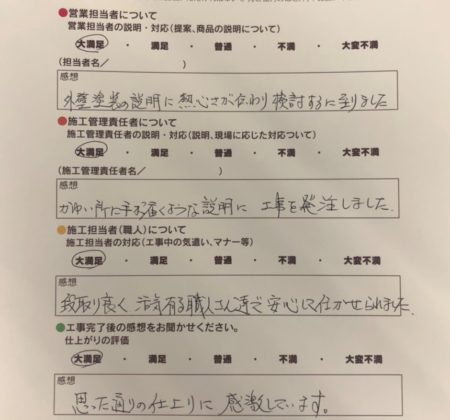 ●営業担当者について
営業担当者の説明・対応(提案、商品の説明について)
大満足 ・ 満足 ・ 普通 ・ 不満 ・ 大変不満
(担当者名/ )
感想
外壁塗装の説明に熱心さが伝わり検討するに至りました
●施工管理責任者について
施工管理責任者の説明・対応(説明、現場に応じた対応ついて)
大満足 ・ 満足 ・ 普通 ・ 不満 ・ 大変不満
(施工管理責任者名/ )
感想
かゆい所に手が届くような説明に 工事を発注しました.
●施工担当者(職人)について
施工担当者の対応(工事中の気遣い、マナー等)
大満足 ・ 満足 ・ 普通 ・ 不満 ・ 大変不満
感想
段取り良く 活気有る職人さん達で安心して任かせられました.
●工事完了後の感想をお聞かせください。
仕上がりの評価
大満足 ・ 満足 ・ 普通 ・ 不満 ・ 大変不満
感想
思った通りの仕上りに 感激しています。